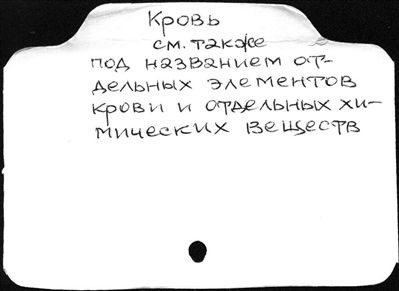 Кровь
см. также
под названием от-
дельных элементов
крови и отдельных хи-
мических веществ